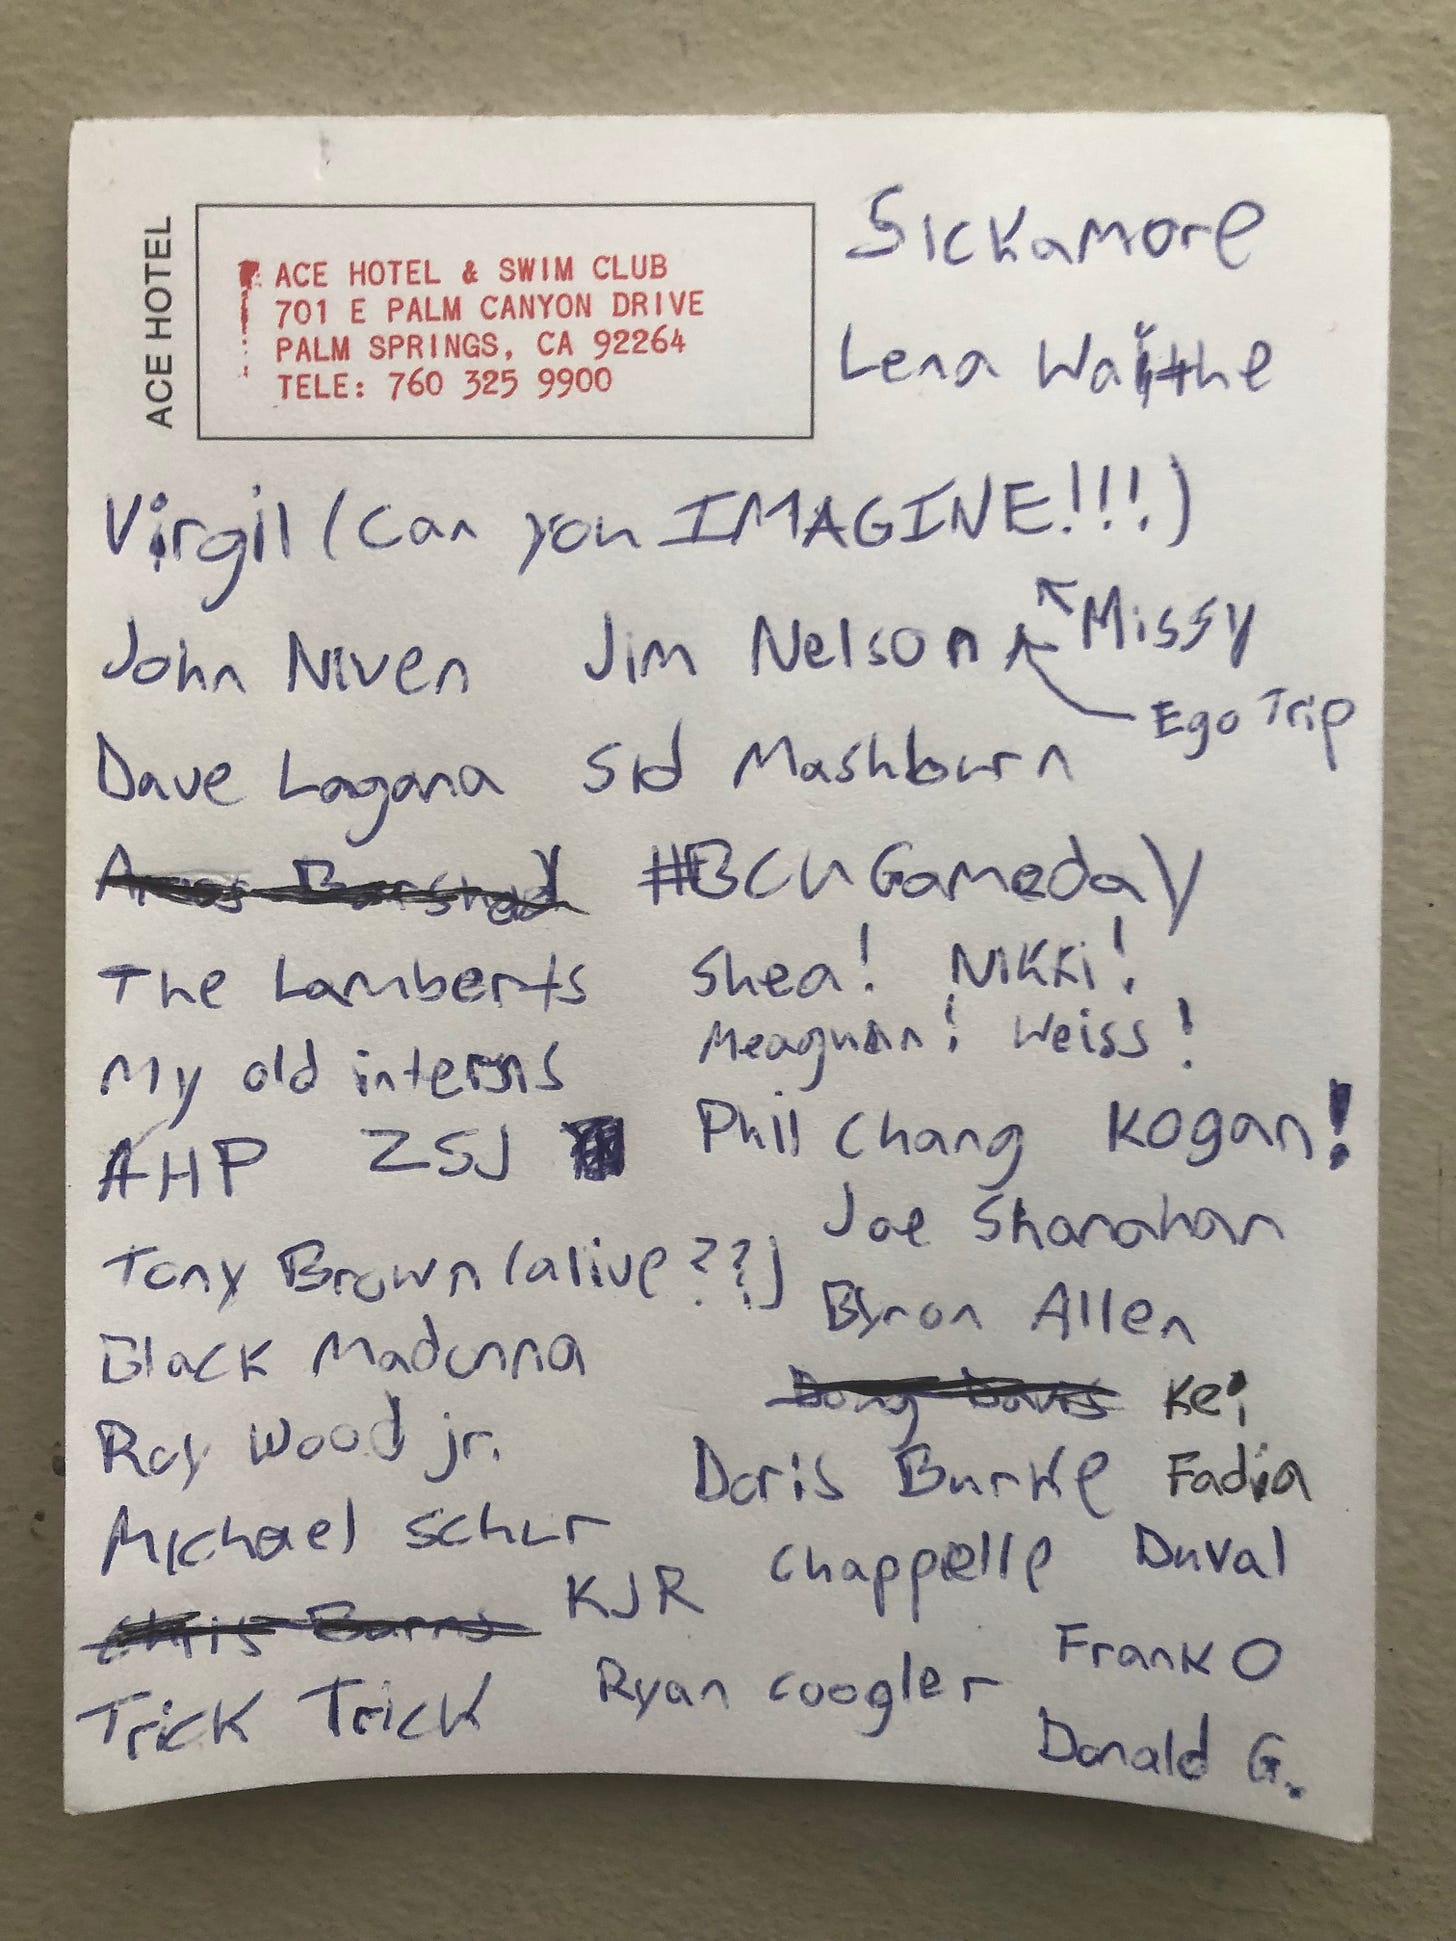 ACE HOTEL
ACE HOTEL & SWIM CLUB
701 E PALM CANYON DRIVE
PALM SPRINGS, CA 92264
TELE: 760 325 9900
Sickamore
Lena Waithe
Virgil (can you IMAGINE!!!)
John Niven Jim Nelson Missy
Ego Trip
Dave Lagana Sid Mashburn
Amos Barshad #BCUGameday
The Lamberts Shea! Nikki!
My old interns Meaghan! Weiss!
AHP ZSJ Phil Chang Kogan!
Joe Shanahan
Tony Brown (alive??)
Byron Allen
Black Madonna
Doug Davis Kei
Roy Wood jr.
Doris Burke Fadia
Michael Schur
Chappelle Duval
Chris Burns KJR
Frank O
Trick Trick Ryan Coogler
Donald G.